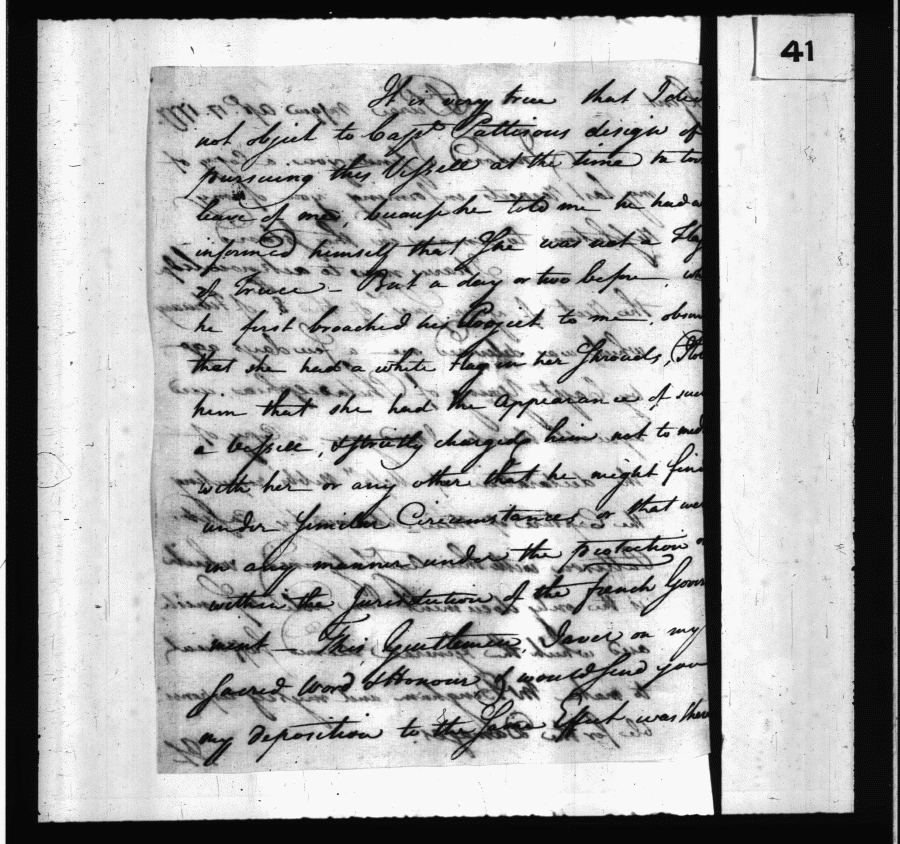 41
It is very true that I did
not object to Capt. Pattisons design of
pursuing this Vessell at the time he too
leave of me, because he told me he had a
informed himself that She was not a Flag
of Truce – But a day or two before, wh
he first broached his Project to me, obser
that she had a white flag in her Shrouds, I to
him that she had the appearance of suc
a vessell, & strictly charged him not to med
with her or any other that he might find
under Similar Circumstances or that wer
in any manner under the protection o
within the Jurisdiction of the french Gover
ment – This, Gentlemen, I aver on my
Sacred Word & Honour & would send you
my deposition to the Same Effect was ther